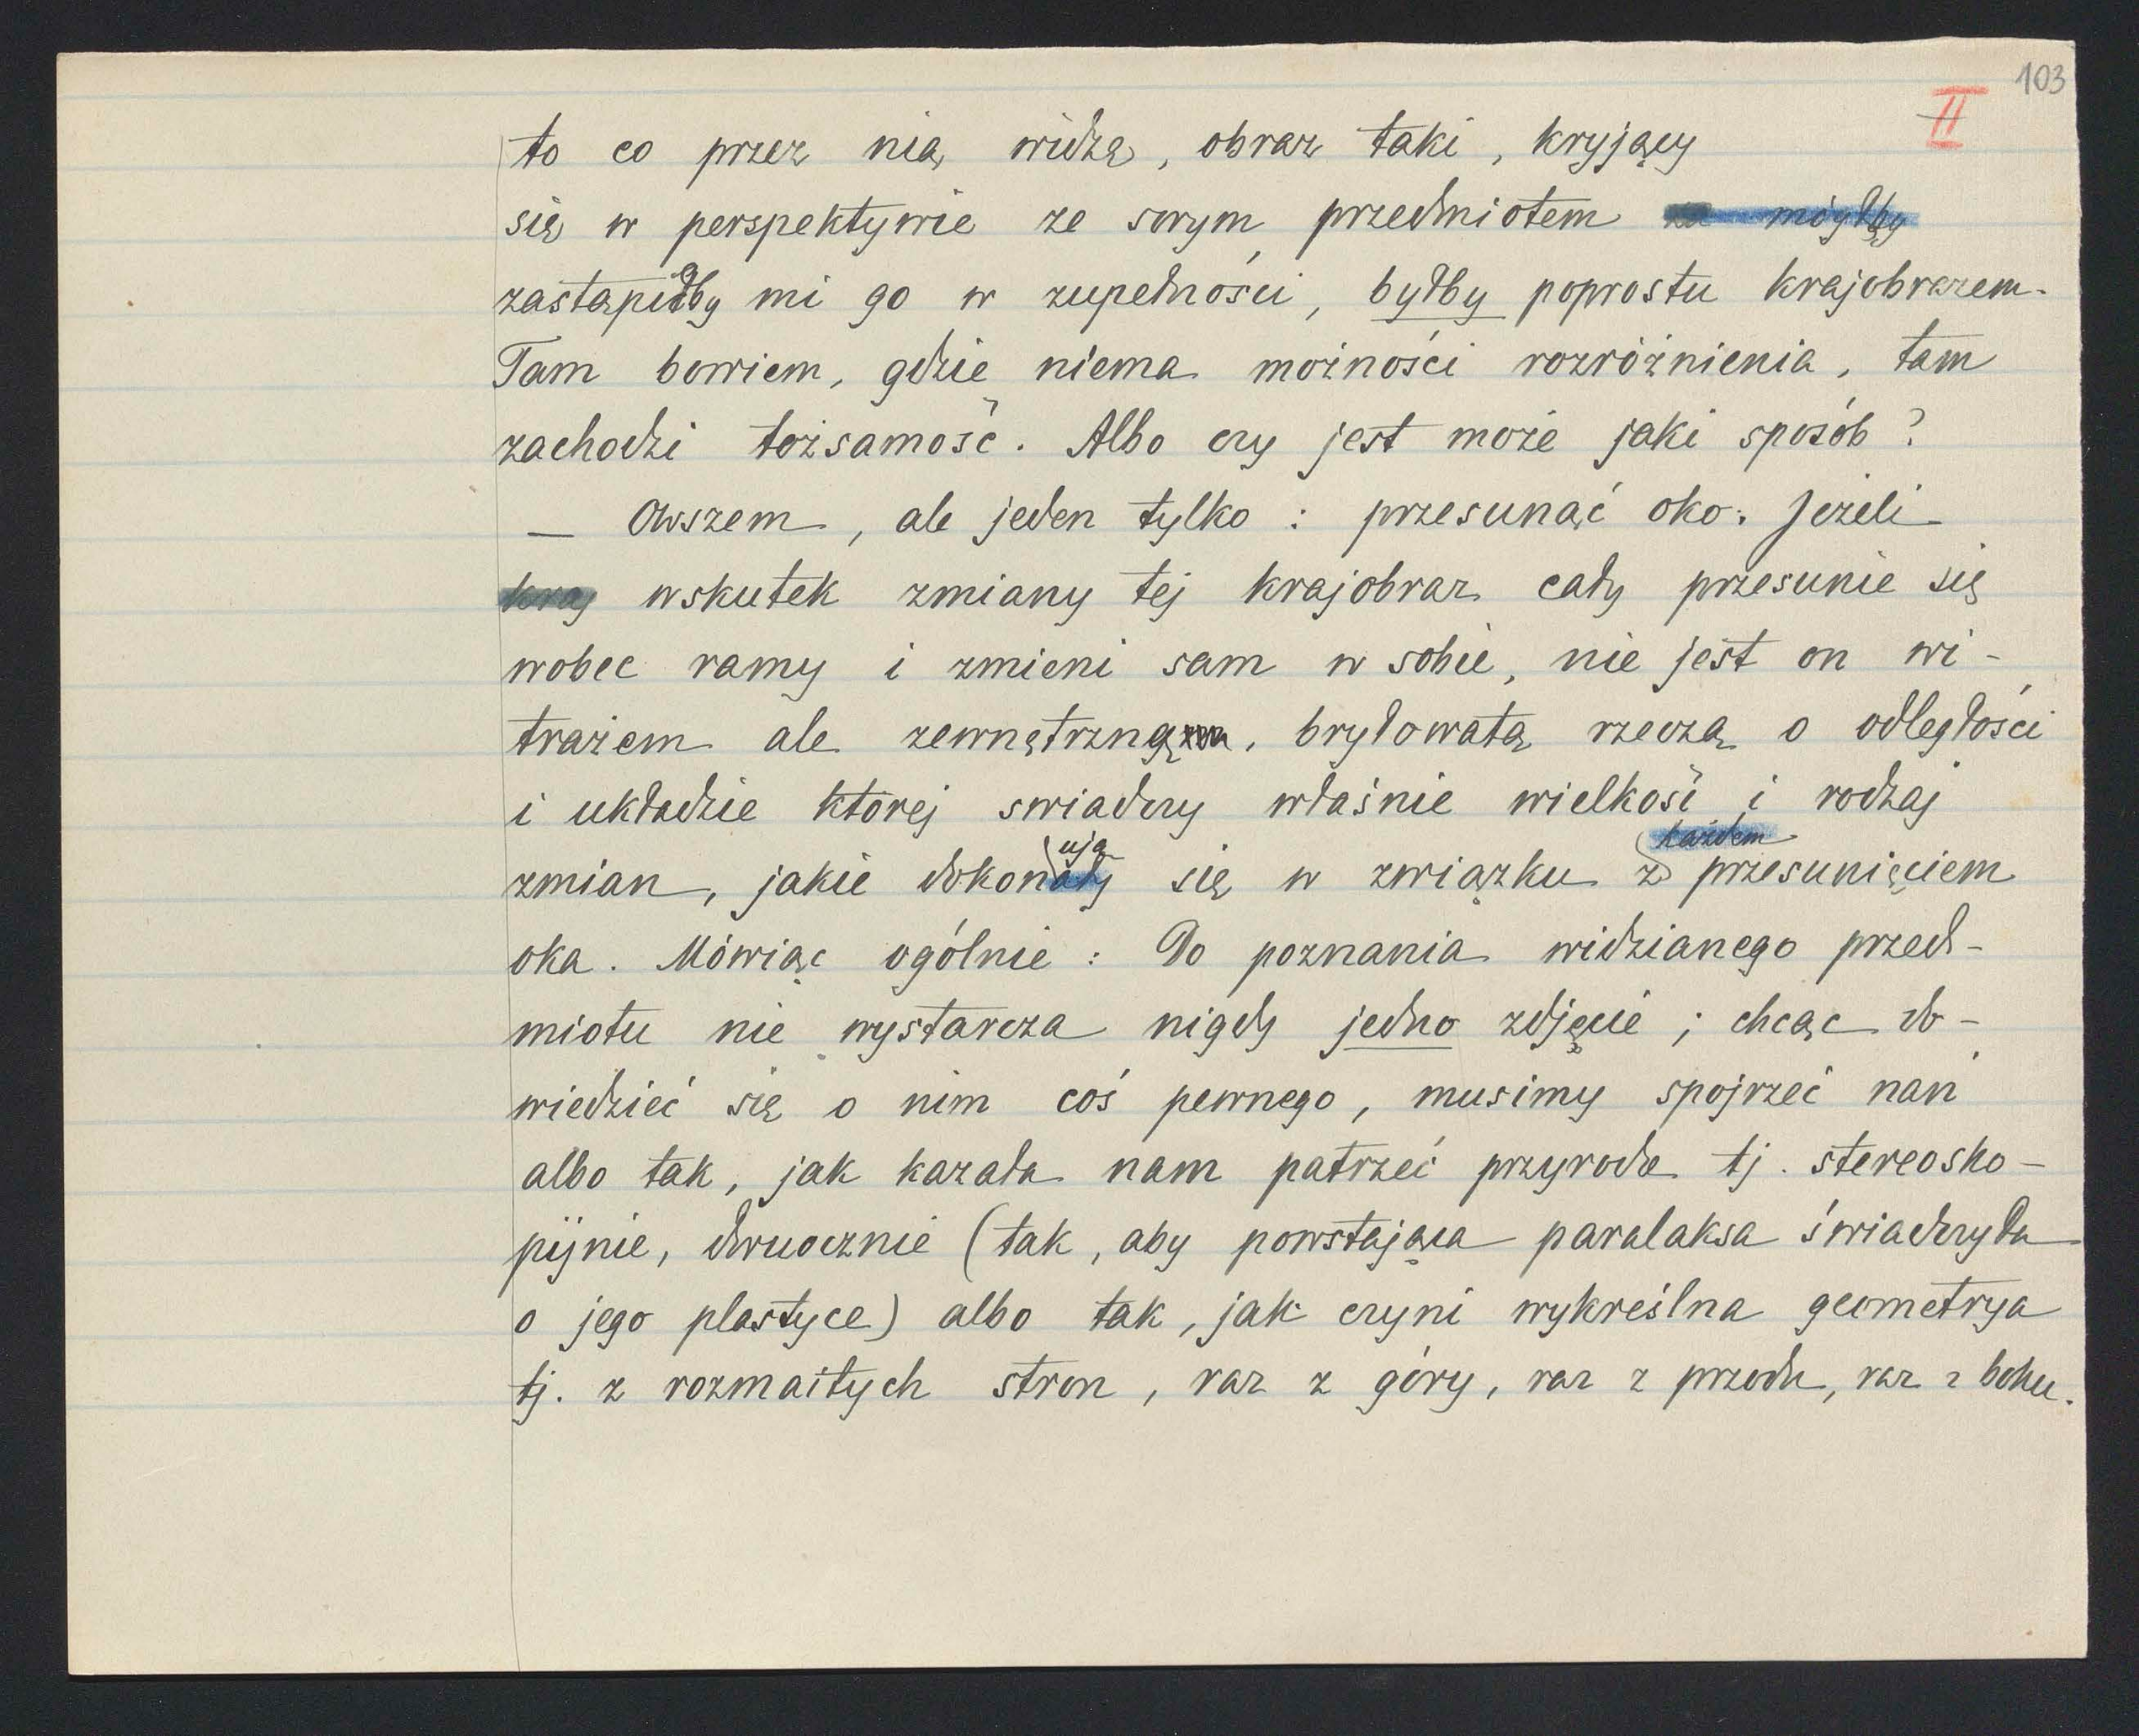 103
II
to co przez nią widzę, obraz taki, kryjący
się w perspektywie ze swym przedmiotem mógłby
zastąpiłby mi go w zupełności, byłby poprostu krajobrazem.
Tam bowiem, gdzie niema możności rozróżnienia, tam
zachodzi tożsamość. Albo czy jest może jaki sposób?
— Owszem, ale jeden tylko: przesunąć oko. Jeżeli
kraj wskutek zmiany tej krajobraz cały przesunie się
wobec ramy i zmieni sam w sobie, nie jest on wi-
trażem ale zewnętrzną, bryłowatą rzeczą o odległości
i układzie której świadczy właśnie wielkość i rodzaj
każdem
ują
zmian, jakie dokonały się w związku z przesunięciem
oka. Mówiąc ogólnie: Do poznania widzianego przed-
miotu nie wystarcza nigdy jedno zdjęcie; chcąc do-
wiedzieć się o nim coś pewnego, musimy spojrzeć nań
albo tak, jak kazała nam patrzeć przyroda tj. stereosko-
pijnie, dwuocznie (tak, aby powstająca paralaksa świadczyła
o jego plastyce) albo tak, jak czyni wykreślna geometrya
tj. z rozmaitych stron, raz z góry, raz z przodu, raz z boku.